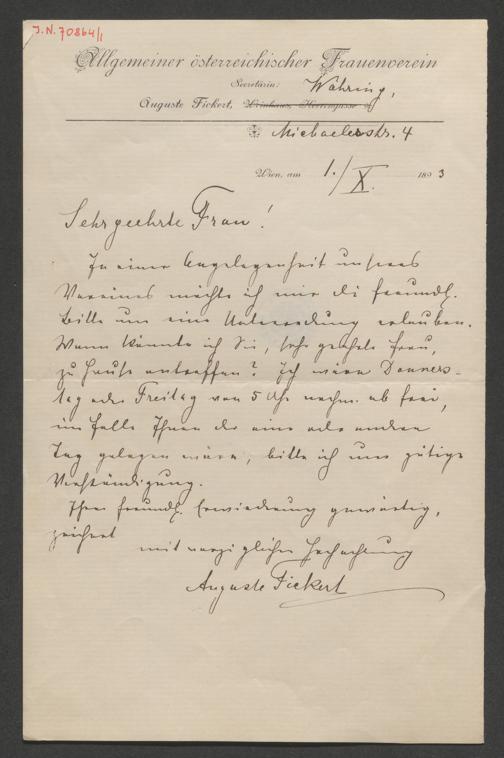 J.N. 70864/1
Allgemeiner österreichischer Frauenverein
Secretärin: Währing,
Auguste Fickert, Weinhaus, Herrengasse
Michaelerstr. 4
Wien, am 1./X. 1893
Sehr geehrte Frau!
In einer Angelegenheit unseres
Vereines möchte ich mir die freundl.
Bitte um eine Unterredung erlauben.
Wann könnte ich Sie, sehr geehrte Frau,
zu Hause antreffen? Ich wäre Donners-
tag oder Freitag von 5 Uhr nachm. ab frei,
im Falle Ihnen der eine oder andere
Tag gelegen wäre, bitte ich um gütige
Verständigung.
Ihrer freundl. Erwiederung gewärtig,
zeichnet
mit vorzüglicher Hochachtung
Auguste Fickert